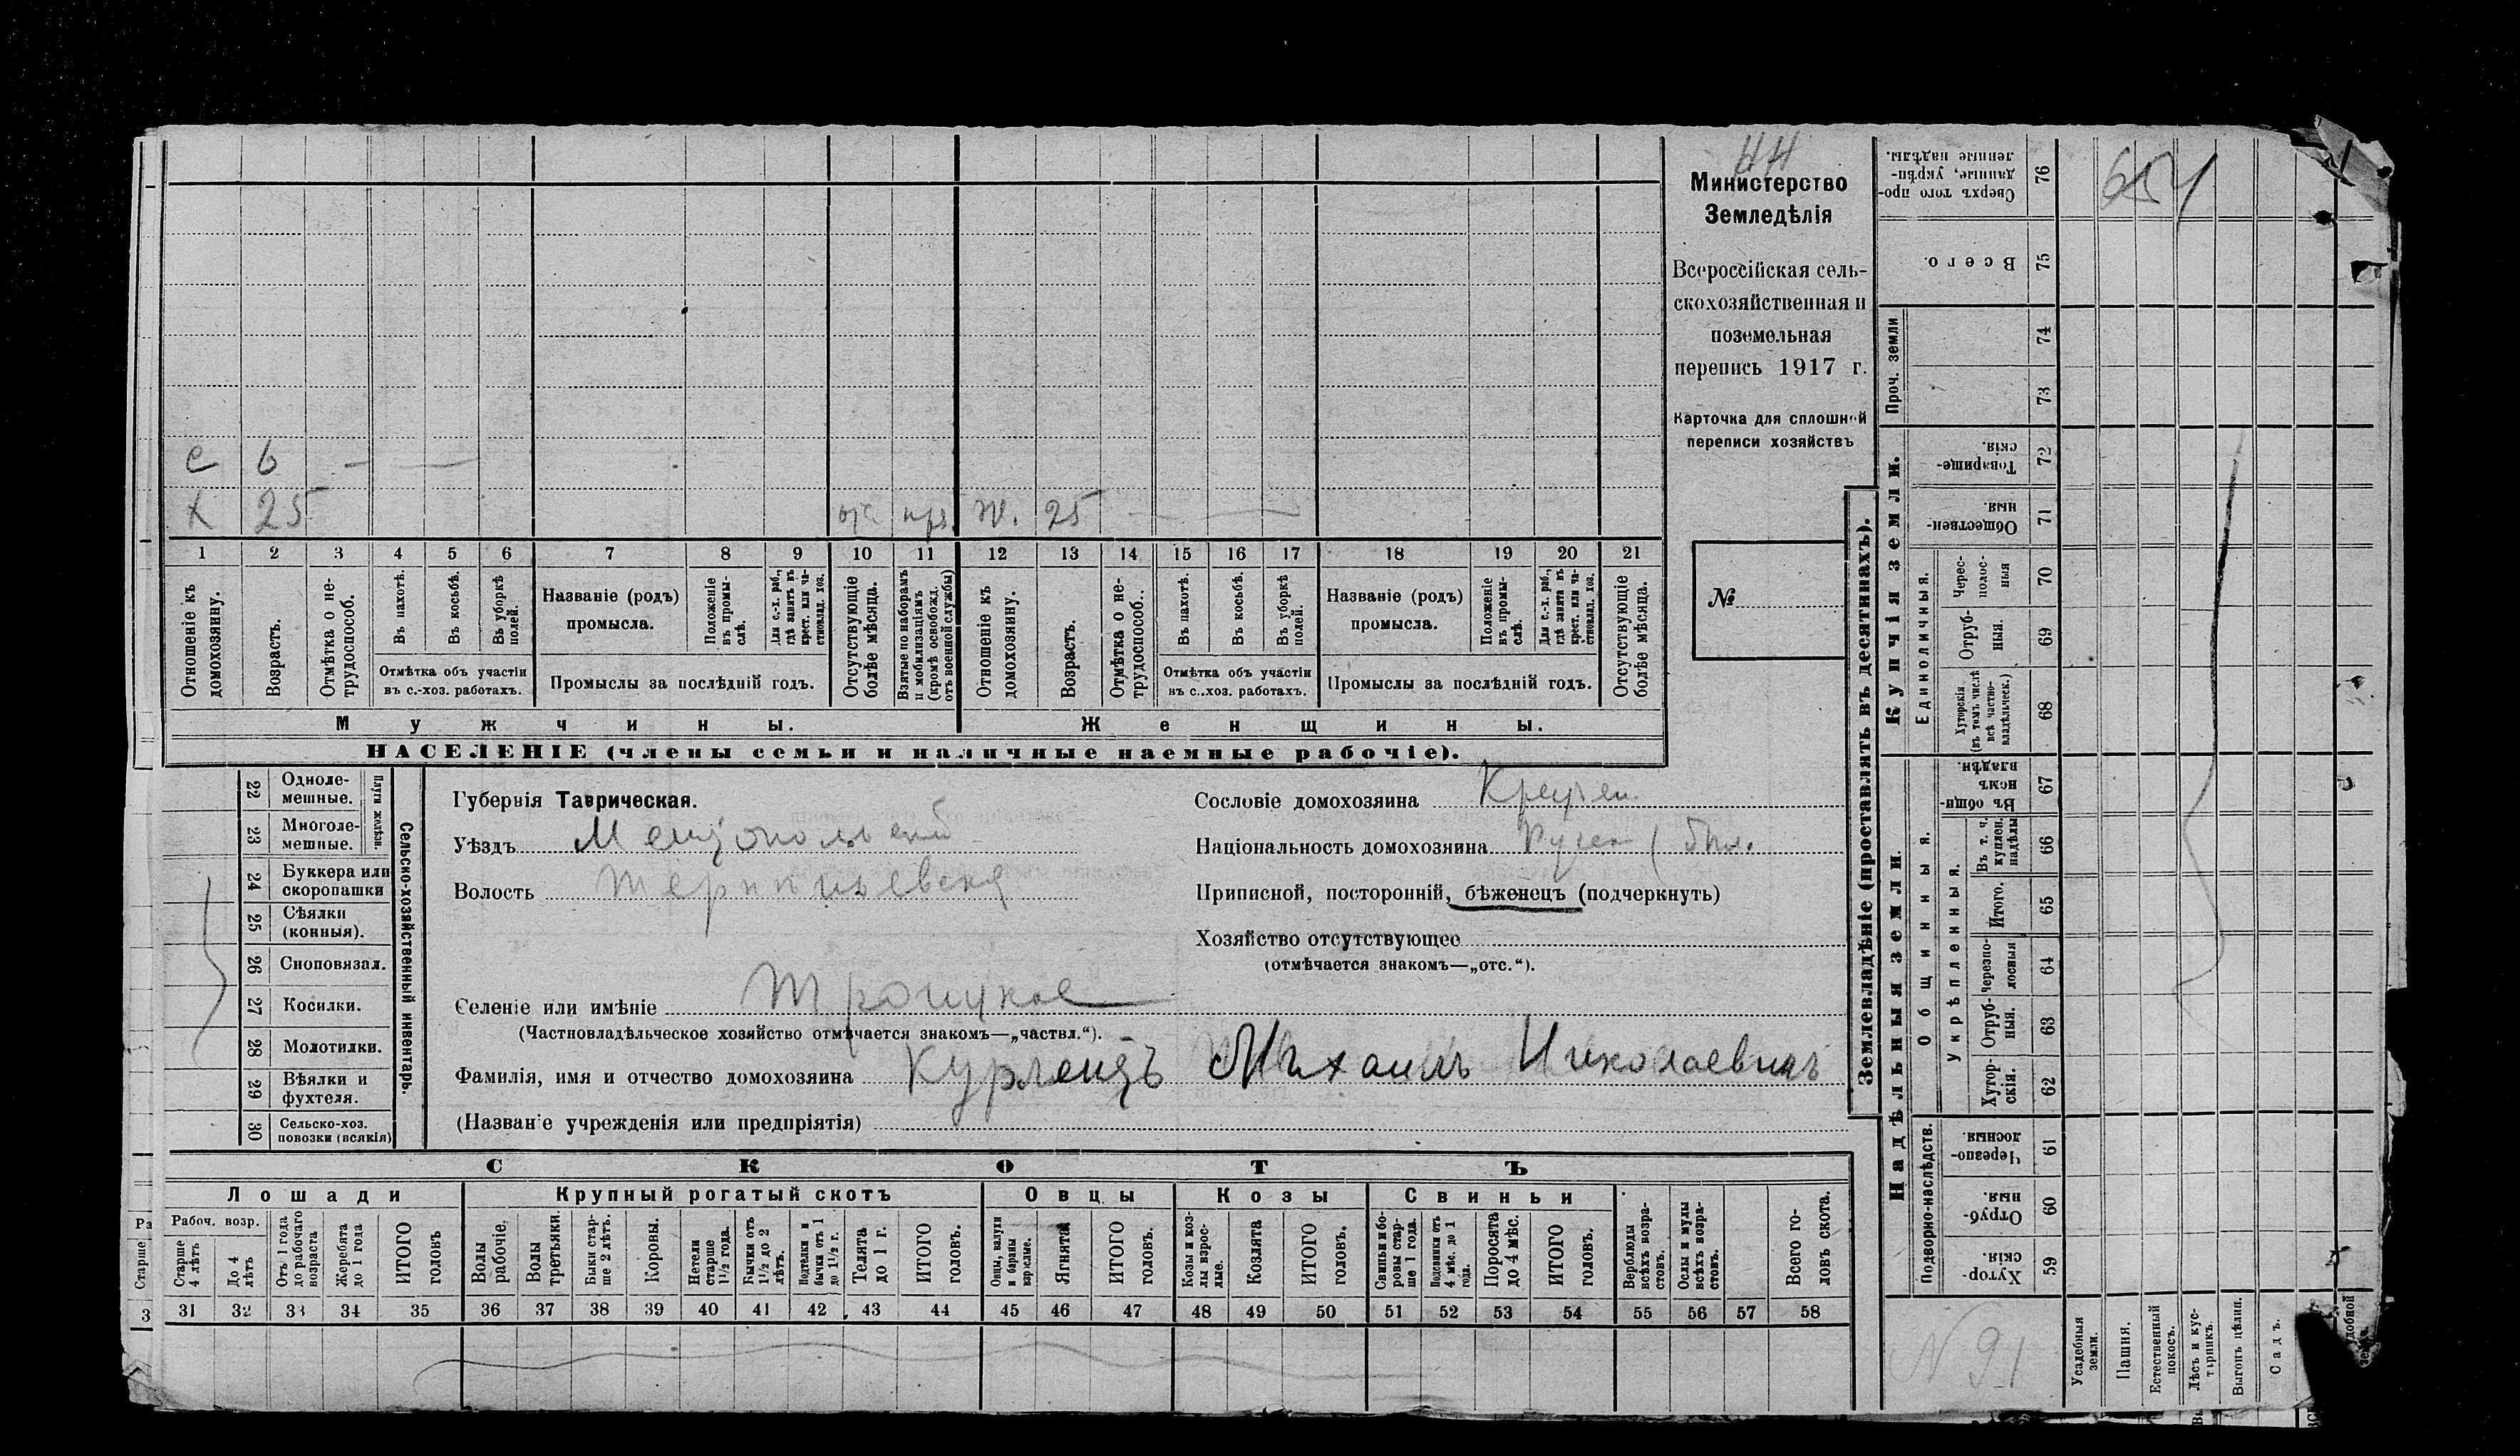 44
Министерство
Земледѣлія
Всероссійская сель-
скохозяйственная и
поземельная
перепись 1917 г.
Карточка для сплошной
переписи хозяйствъ
№
с 6 — —
х 25 отс. пр. ж. 25 — —
1 2 3 4 5 6 7 8 9 10 11 12 13 14 15 16 17 18 19 20 21
Отношеніе къ домохозяину.
Возрастъ.
Отмѣтка о не-трудоспособ.
Въ пахотѣ.
Въ косьбѣ.
Въ уборкѣ полей.
Отмѣтка объ участіи
въ с.-хоз. работахъ.
Названіе (родъ)
промысла.
Положеніе въ промы-слѣ.
Для с.-х. раб., гдѣ занятъ въ крест. или ча-стновлад. хоз.
Промыслы за послѣдній годъ.
Отсутствующіе болѣе мѣсяца.
Взятые по наборамъ и мобилизаціямъ (кромѣ освобожд. отъ военной службы)
Отношеніе къ домохозяину.
Возрастъ.
Отмѣтка о не-трудоспособ..
Въ пахотѣ.
Въ косьбѣ.
Въ уборкѣ полей.
Отмѣтка объ участіи
въ с..хоз. работахъ.
Названіе (родъ)
промысла.
Положеніе въ промы-слѣ.
Для с.-х. раб., гдѣ занята въ крест. или ча-стновлад. хоз.
Промыслы за послѣдній годъ.
Отсутствующіе болѣе мѣсяца.
Мужчины.
Женщины.
НАСЕЛЕНІЕ (члены семьи и наличные наемные рабочіе).
22 Одноле-мешные.
23 Многоле-мешные.
Плуги желѣзн.
24 Буккера или скоропашки
25 Сѣялки (конныя).
26 Сноповязал.
27 Косилки.
28 Молотилки.
29 Вѣялки и фухтеля.
30 Сельско-хоз. повозки (всякія)
Сельско-хозяйственный инвентарь.
Губернія Таврическая.
Уѣздъ Мелитопольскій
Волость
Селеніе или имѣніе Троицкое
(Частновладѣльческое хозяйство отмѣчается знакомъ—„частвл.“).
Фамилія, имя и отчество домохозяина Курленцъ Михаилъ Николаевичъ
(Названіе учрежденія или предпріятія)
Сословіе домохозяина Крестьян.
Національность домохозяина Русск (бѣл.
Приписной, посторонній, бѣженецъ (подчеркнуть)
Хозяйство отсутствующее
(отмѣчается знакомъ—„отс.“).
СКОТЪ
Лошади
Крупный рогатый скотъ
Овцы
Козы
Свиньи
Рабоч. возр.
Старше 4 лѣтъ
До 4 лѣтъ
Отъ 1 года до рабочаго возраста
Жеребята до 1 года
ИТОГО головъ
Волы рабочіе.
Волы третьяки.
Быки стар-ше 2 лѣтъ.
Коровы.
Нетели старше 1½ года.
Бычки отъ 1½ до 2 лѣтъ.
Подтелки и бычки отъ 1 до 1½ г.
Телята до 1 г.
ИТОГО головъ.
Овцы, валухи и бараны взрослые.
Ягнята
ИТОГО головъ.
Козы и коз-лы взрос-лые.
Козлята
ИТОГО головъ.
Свиньи и бо-ровы стар-ше 1 года.
Подсвинки отъ 4 мѣс. до 1 года.
Поросята до 4 мѣс.
ИТОГО головъ.
Верблюды всѣхъ возра-стовъ.
Ослы и мулы всѣхъ возра-стовъ.
Всего го-ловъ скота.
31 32 33 34 35 36 37 38 39 40 41 42 43 44 45 46 47 48 49 50 51 52 53 54 55 56 57 58
Ра
Старше
3
Землевладѣніе (проставлять въ десятинахъ).
Купчія земли.
Надѣльныя земли.
Сверхъ того про-данные, укрѣп-ленные надѣлы. 76
654
Всего. 75
Проч. земли 74
73
Товарище-скія 72
Обществен-ныя 71
Единоличныя.
Черес-полос-ныя 70
Отруб-ныя. 69
Хуторскія (въ томъ числѣ всѣ частно-владѣльческ.) 68
Общинныя.
Въ общин-номъ владѣн. 67
Укрѣпленныя.
Въ т. ч. куплен. надѣлы 66
Итого. 65
Черезпо-лосныя 64
Отруб-ныя. 63
Хутор-скія. 62
Подворно-наслѣдств.
Черезпо-лосныя. 61
Отруб-ныя. 60
Хутор-скія. 59
N 91
Усадебныя земли.
Пашня.
Естественный покосъ.
Лѣсъ и кус-тарникъ.
Выгонъ цѣлин.
Садъ.
удобной